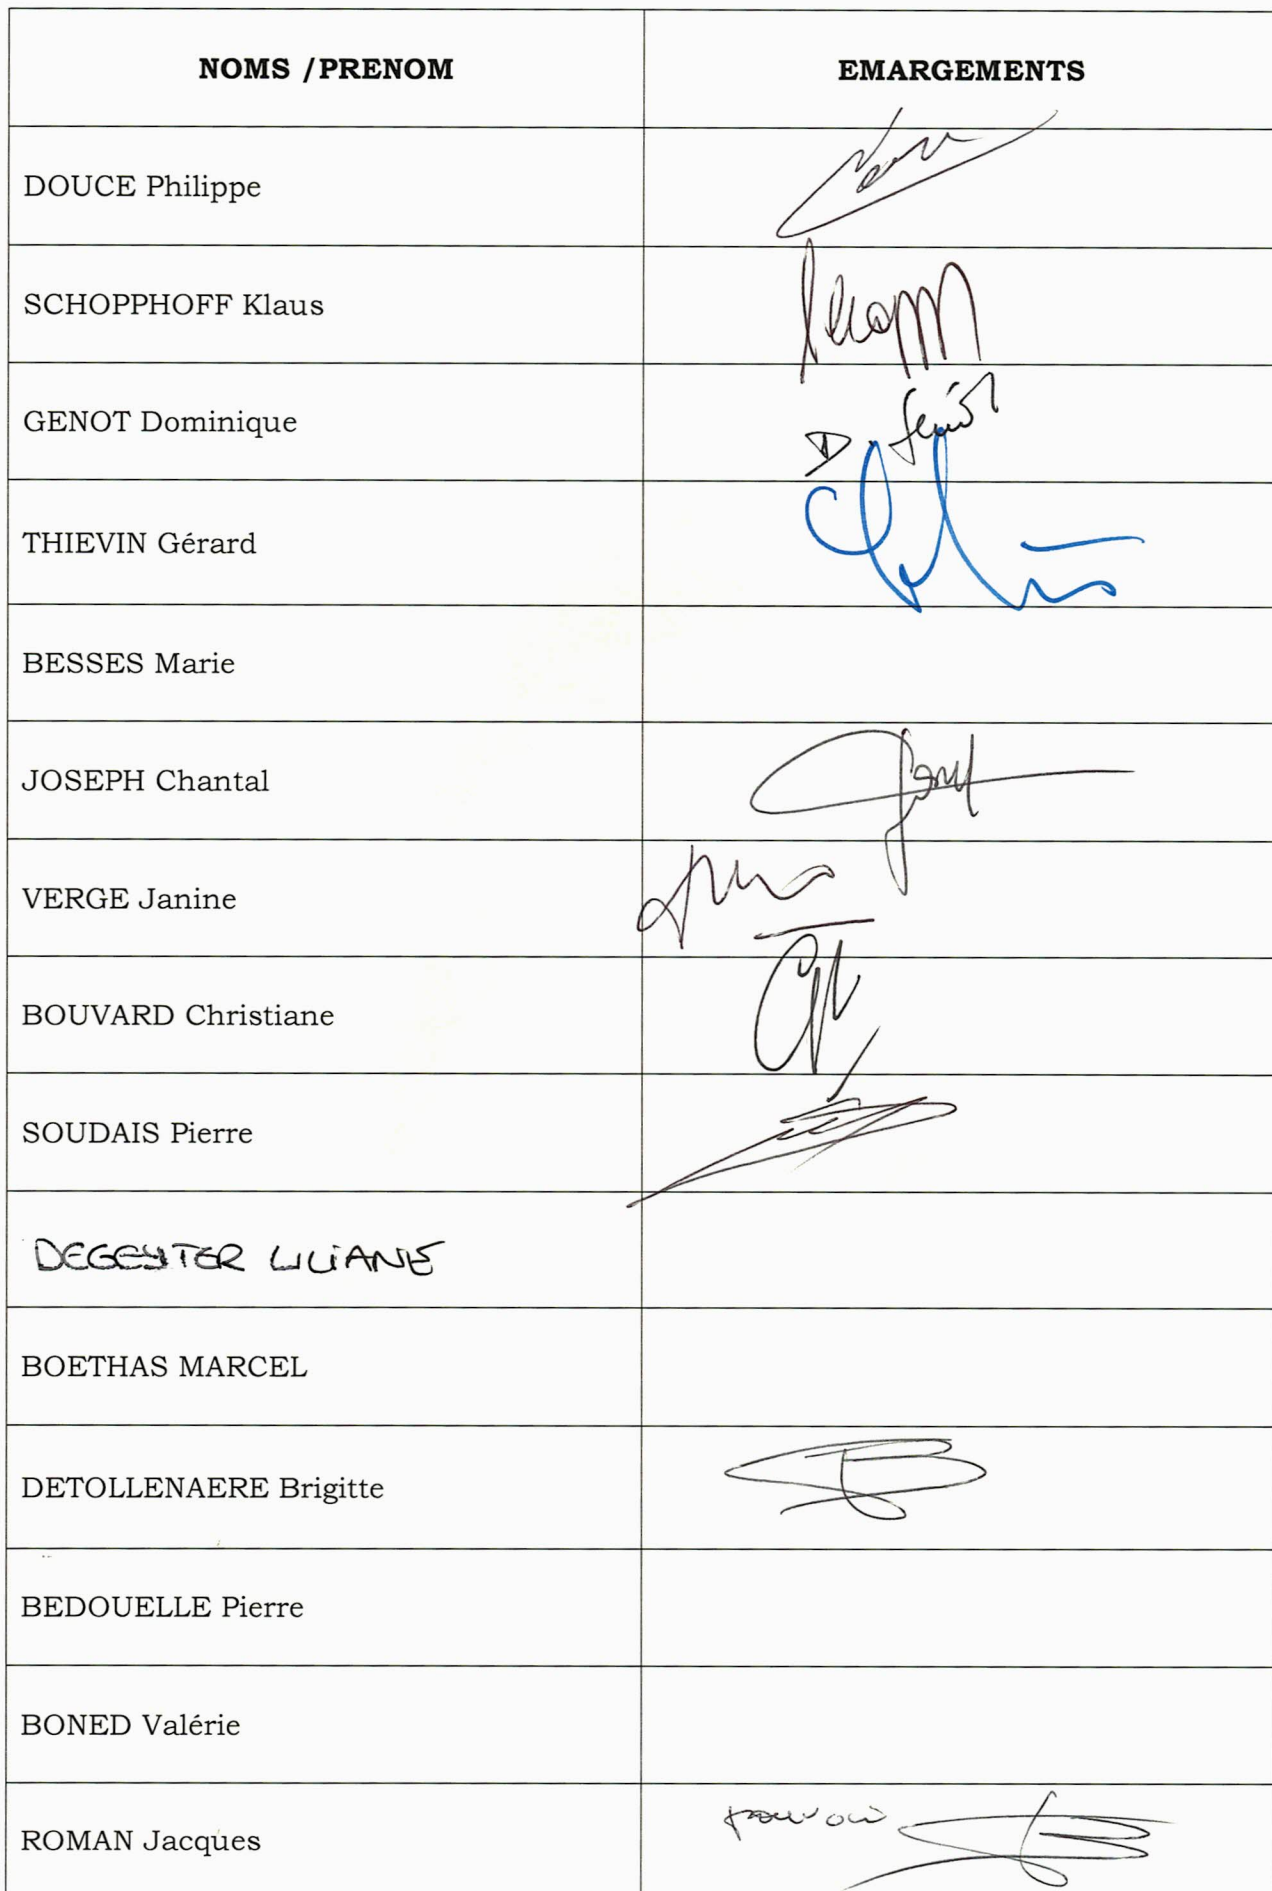 NOMS /PRENOM EMARGEMENTS
DOUCE Philippe
SCHOPPHOFF Klaus
GENOT Dominique D. Genot
THIEVIN Gérard
BESSES Marie
JOSEPH Chantal
VERGE Janine
BOUVARD Christiane
SOUDAIS Pierre
DEGEYTER LILIANE
BOETHAS MARCEL
DETOLLENAERE Brigitte
BEDOUELLE Pierre
BONED Valérie
ROMAN Jacques pouvoir